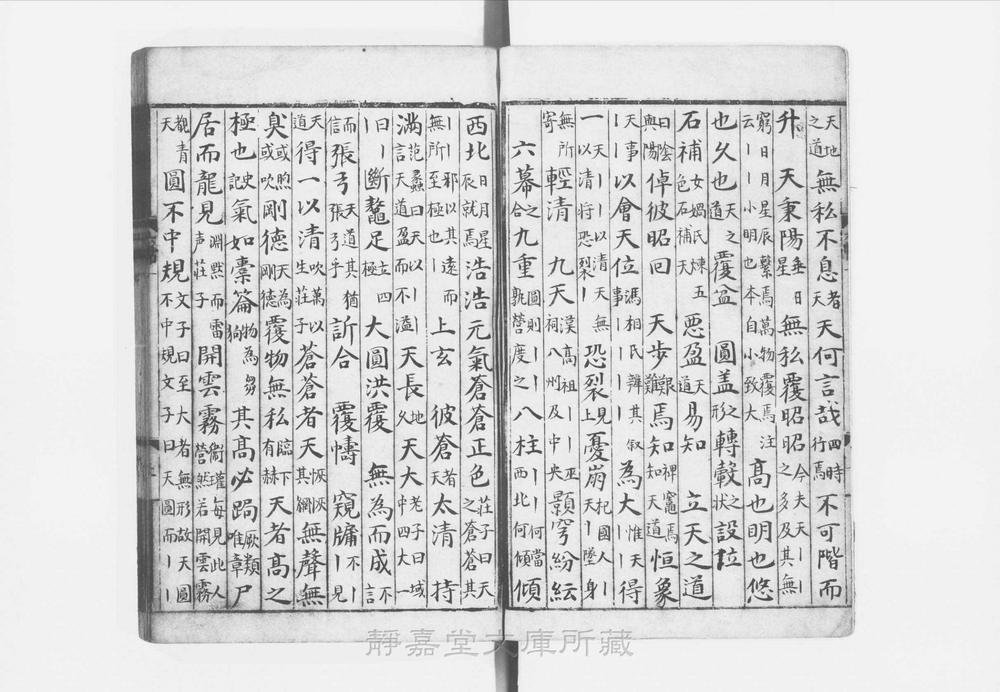 天地之道無私不息者天天何言哉四時行焉不可階而
升　天秉陽垂日星無私覆昭昭今夫天丨丨之多及其無
窮日月星辰繫焉萬物覆焉注云丨丨小明也本自小致大高也明也悠
也久也天之道覆盆　圓盖之形轉轂之狀設位
石補女媧氏煉五色石補天惡盈天道易知　立天之道
曰陰與陽倬彼昭回　天步艱難焉知裨竈焉知天道恒象
天丨事以會天位馮相氏辨其叙事為大惟天丨丨得
一天丨丨以清天無以清將恐裂恐裂見上憂崩杞國人丨天丨墜身
無所寄輕清　九天漢高祖丨丨巫祠八州及中央顥穹紛紜
六幕之合九重圜則丨丨孰營度之八柱丨丨何當西北何傾傾
西北日月星辰就焉浩浩元氣蒼蒼正色莊子曰天之蒼蒼其
丨丨邪以其遠而無所至極也上玄　彼蒼者天太清　持
滿范蠡曰天以丨言天道盈而不溢天長地久天大老子曰域中四大
曰丨斷鼇足立四極大圓洪覆　無為而成不言
而信張弓天道其猶張弓乎訢合　覆幬　窺牖不丨丨見
天道得一以清吹萬蒼蒼者天恢恢其網無聲無
臭或煦或吹剛德天為剛德覆物無私臨下有赫天者高之
極也史記氣如橐籥物為芻狗其高必跼厥類惟章尸
居而龍見淵默而雷声莊子開雲霧衛瓘每見此人瑩然若開雲霧
覩青天圓不中規文子曰至大者無形故天圓不中規文子曰天圓而丨丨
靜嘉堂文庫所藏